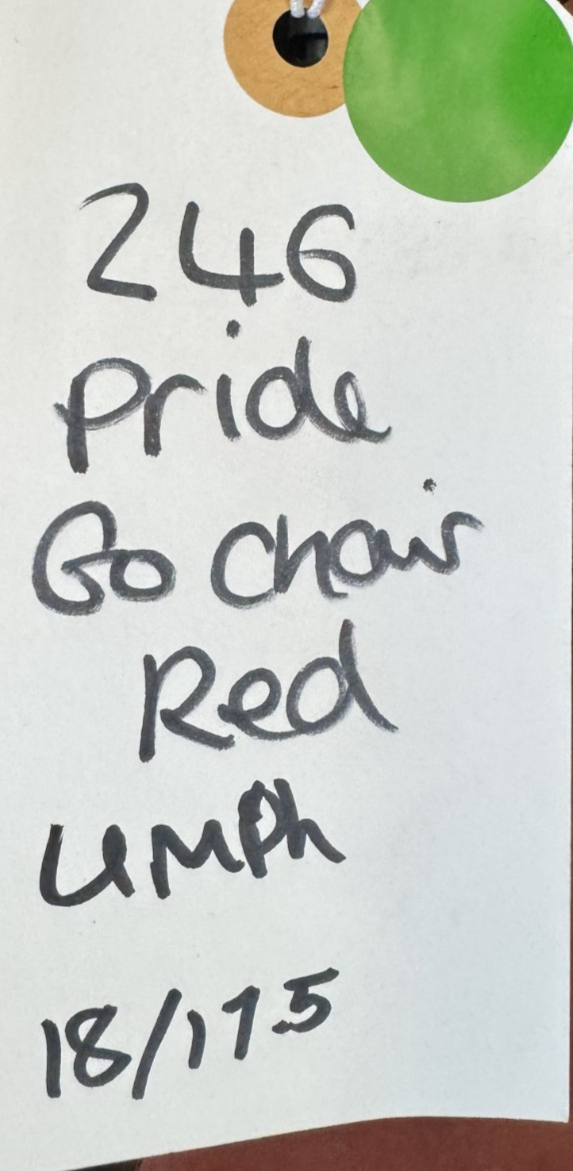 246
Pride
Go Chair
Red
4MPh
18/17.5